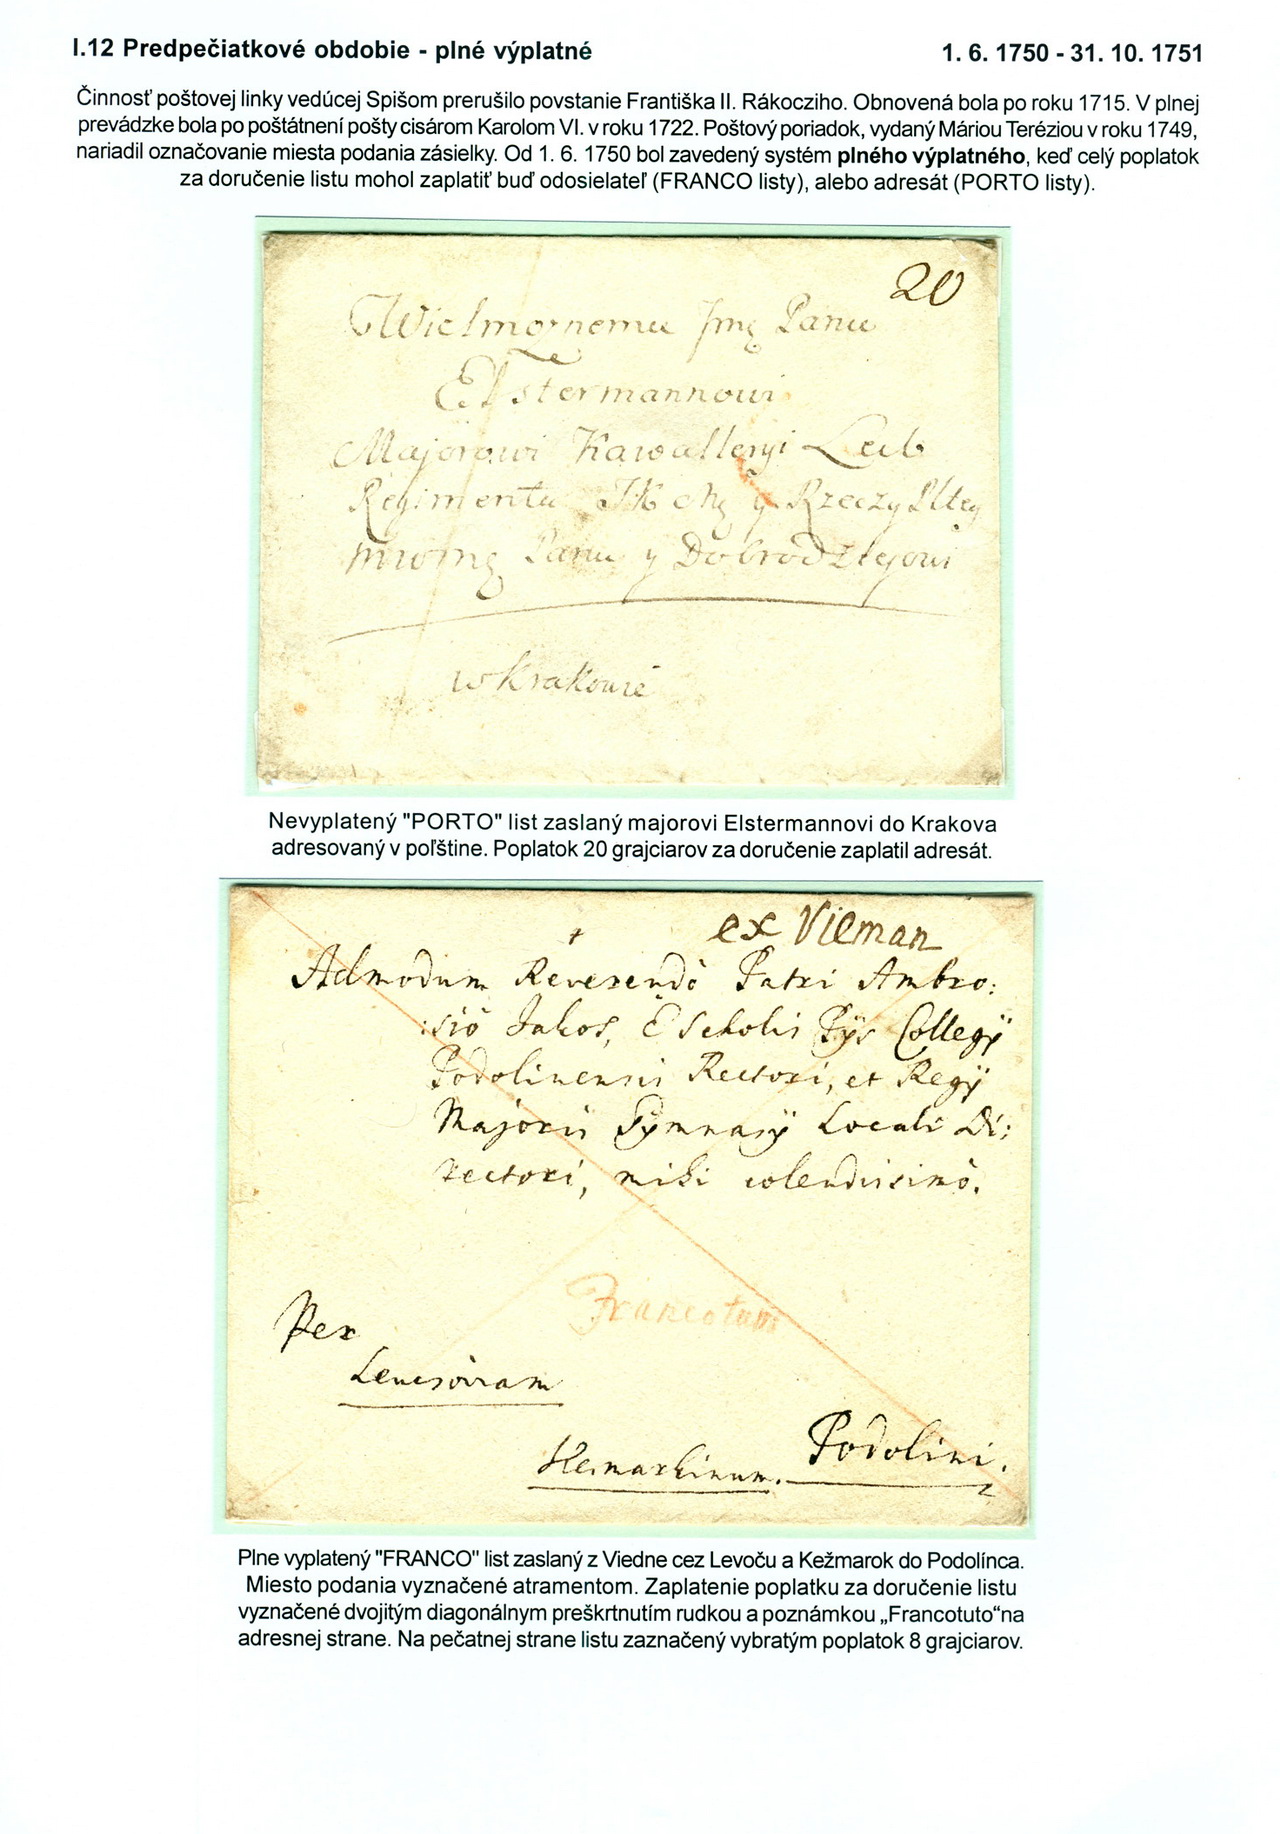 I.12 Predpečiatkové obdobie - plné výplatné 1. 6. 1750 - 31. 10. 1751
Činnosť poštovej linky vedúcej Spišom prerušilo povstanie Františka II. Rákocziho. Obnovená bola po roku 1715. V plnej
prevádzke bola po poštátnení pošty cisárom Karolom VI. v roku 1722. Poštový poriadok, vydaný Máriou Teréziou v roku 1749,
nariadil označovanie miesta podania zásielky. Od 1. 6. 1750 bol zavedený systém plného výplatného, keď celý poplatok
za doručenie listu mohol zaplatiť buď odosielateľ (FRANCO listy), alebo adresát (PORTO listy).
20
Wielmoznemu Jmg Panu
Elstermannowi
Majorowi Kawalleryi Leib
Regimentu JK Mg y Rzeczy Pltey
mwmg Panu y Dobrodziejowi
w Krakowie
Nevyplatený "PORTO" list zaslaný majorovi Elstermannovi do Krakova
adresovaný v poľštine. Poplatok 20 grajciarov za doručenie zaplatil adresát.
ex Vieman
Admodum Reverendò Patri Ambro:
:siô Jakos, è Scholis Pijs Collegÿ
Podolinensis Rectori, et Regÿ
Majoris Gymnasÿ Locali Di:
rectori, mihi colendissimô.
Francotum
Per
Leucsòviam
Kesmarkinum. Podolini.
Plne vyplatený "FRANCO" list zaslaný z Viedne cez Levoču a Kežmarok do Podolínca.
Miesto podania vyznačené atramentom. Zaplatenie poplatku za doručenie listu
vyznačené dvojitým diagonálnym preškrtnutím rudkou a poznámkou „Francotuto“na
adresnej strane. Na pečatnej strane listu zaznačený vybratým poplatok 8 grajciarov.